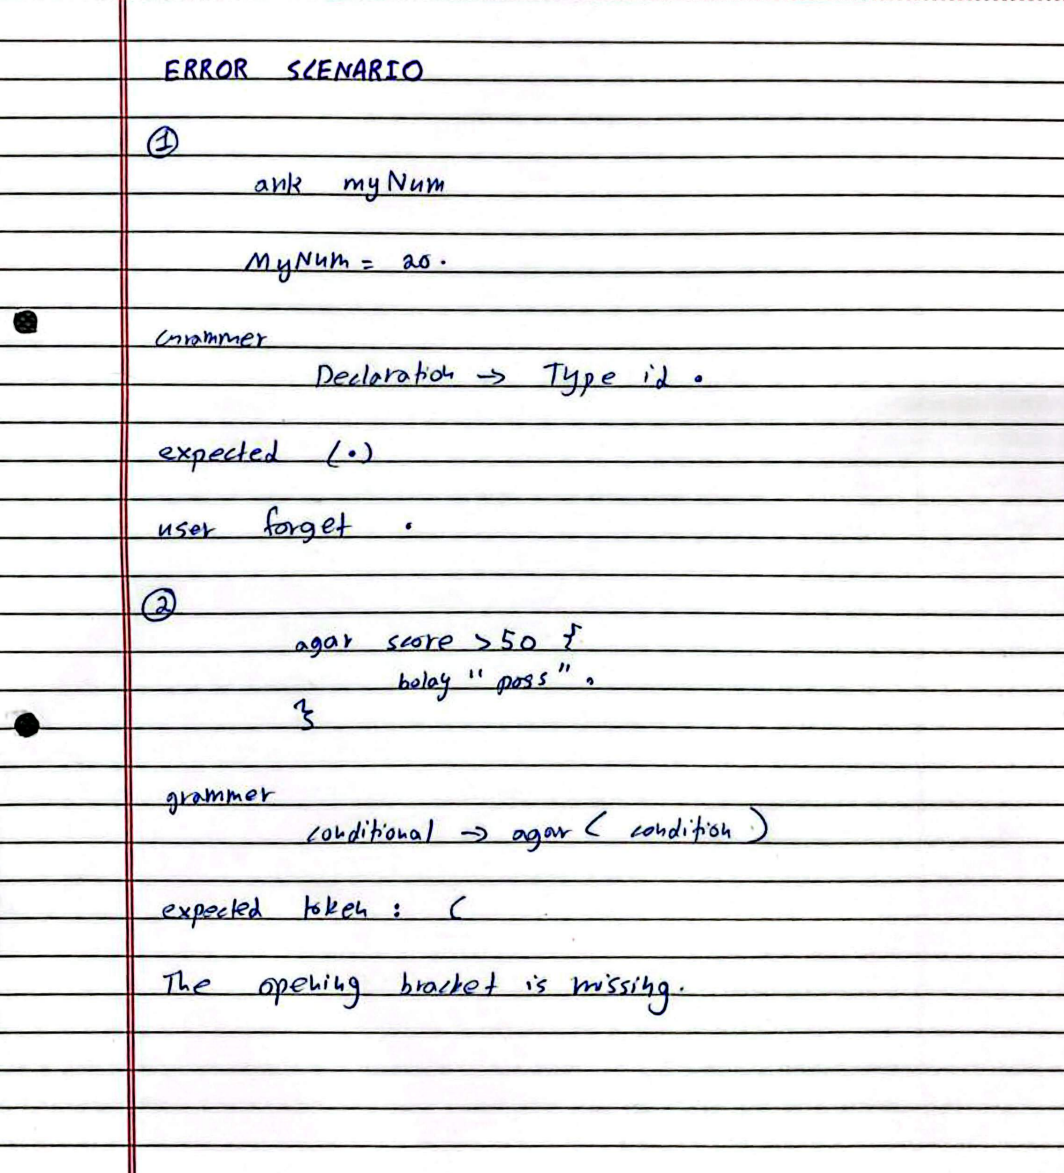 ERROR SCENARIO
①
ank myNum
MyNum = 20.
Grammer
Declaration → Type id .
expected (.)
user forget .
②
agar score > 50 {
bolay "pass".
}
grammer
conditional → agar ( condition )
expected token : (
The opening bracket is missing.